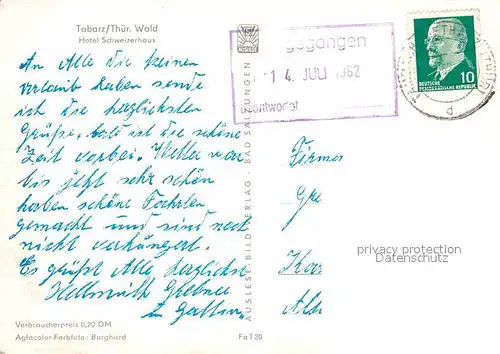 Tabarz/Thür. Wald
Hotel Schweizerhaus
An Alle die keinen
Urlaub haben sende
ich die herzlichsten
Grüße, bald ist die schöne
Zeit vorbei. Wetter war
bis jetzt sehr schön
haben schöne Fahrten
gemacht und sind noch
nicht verhungert.
Es grüßt Alle herzlichst
Hellmuth
u. Gattin
Verbraucherpreis 0,20 DM
Agfacolor-Farbfoto: Burghard
AUSLESE-BILD-VERLAG - BAD SALZUNGEN
Fa T 20
gegangen
14. JULI 1962
antwortet
10
DEUTSCHE
DEMOKRATISCHE REPUBLIK
d
Firma
Gre
privacy protection
Datenschutz